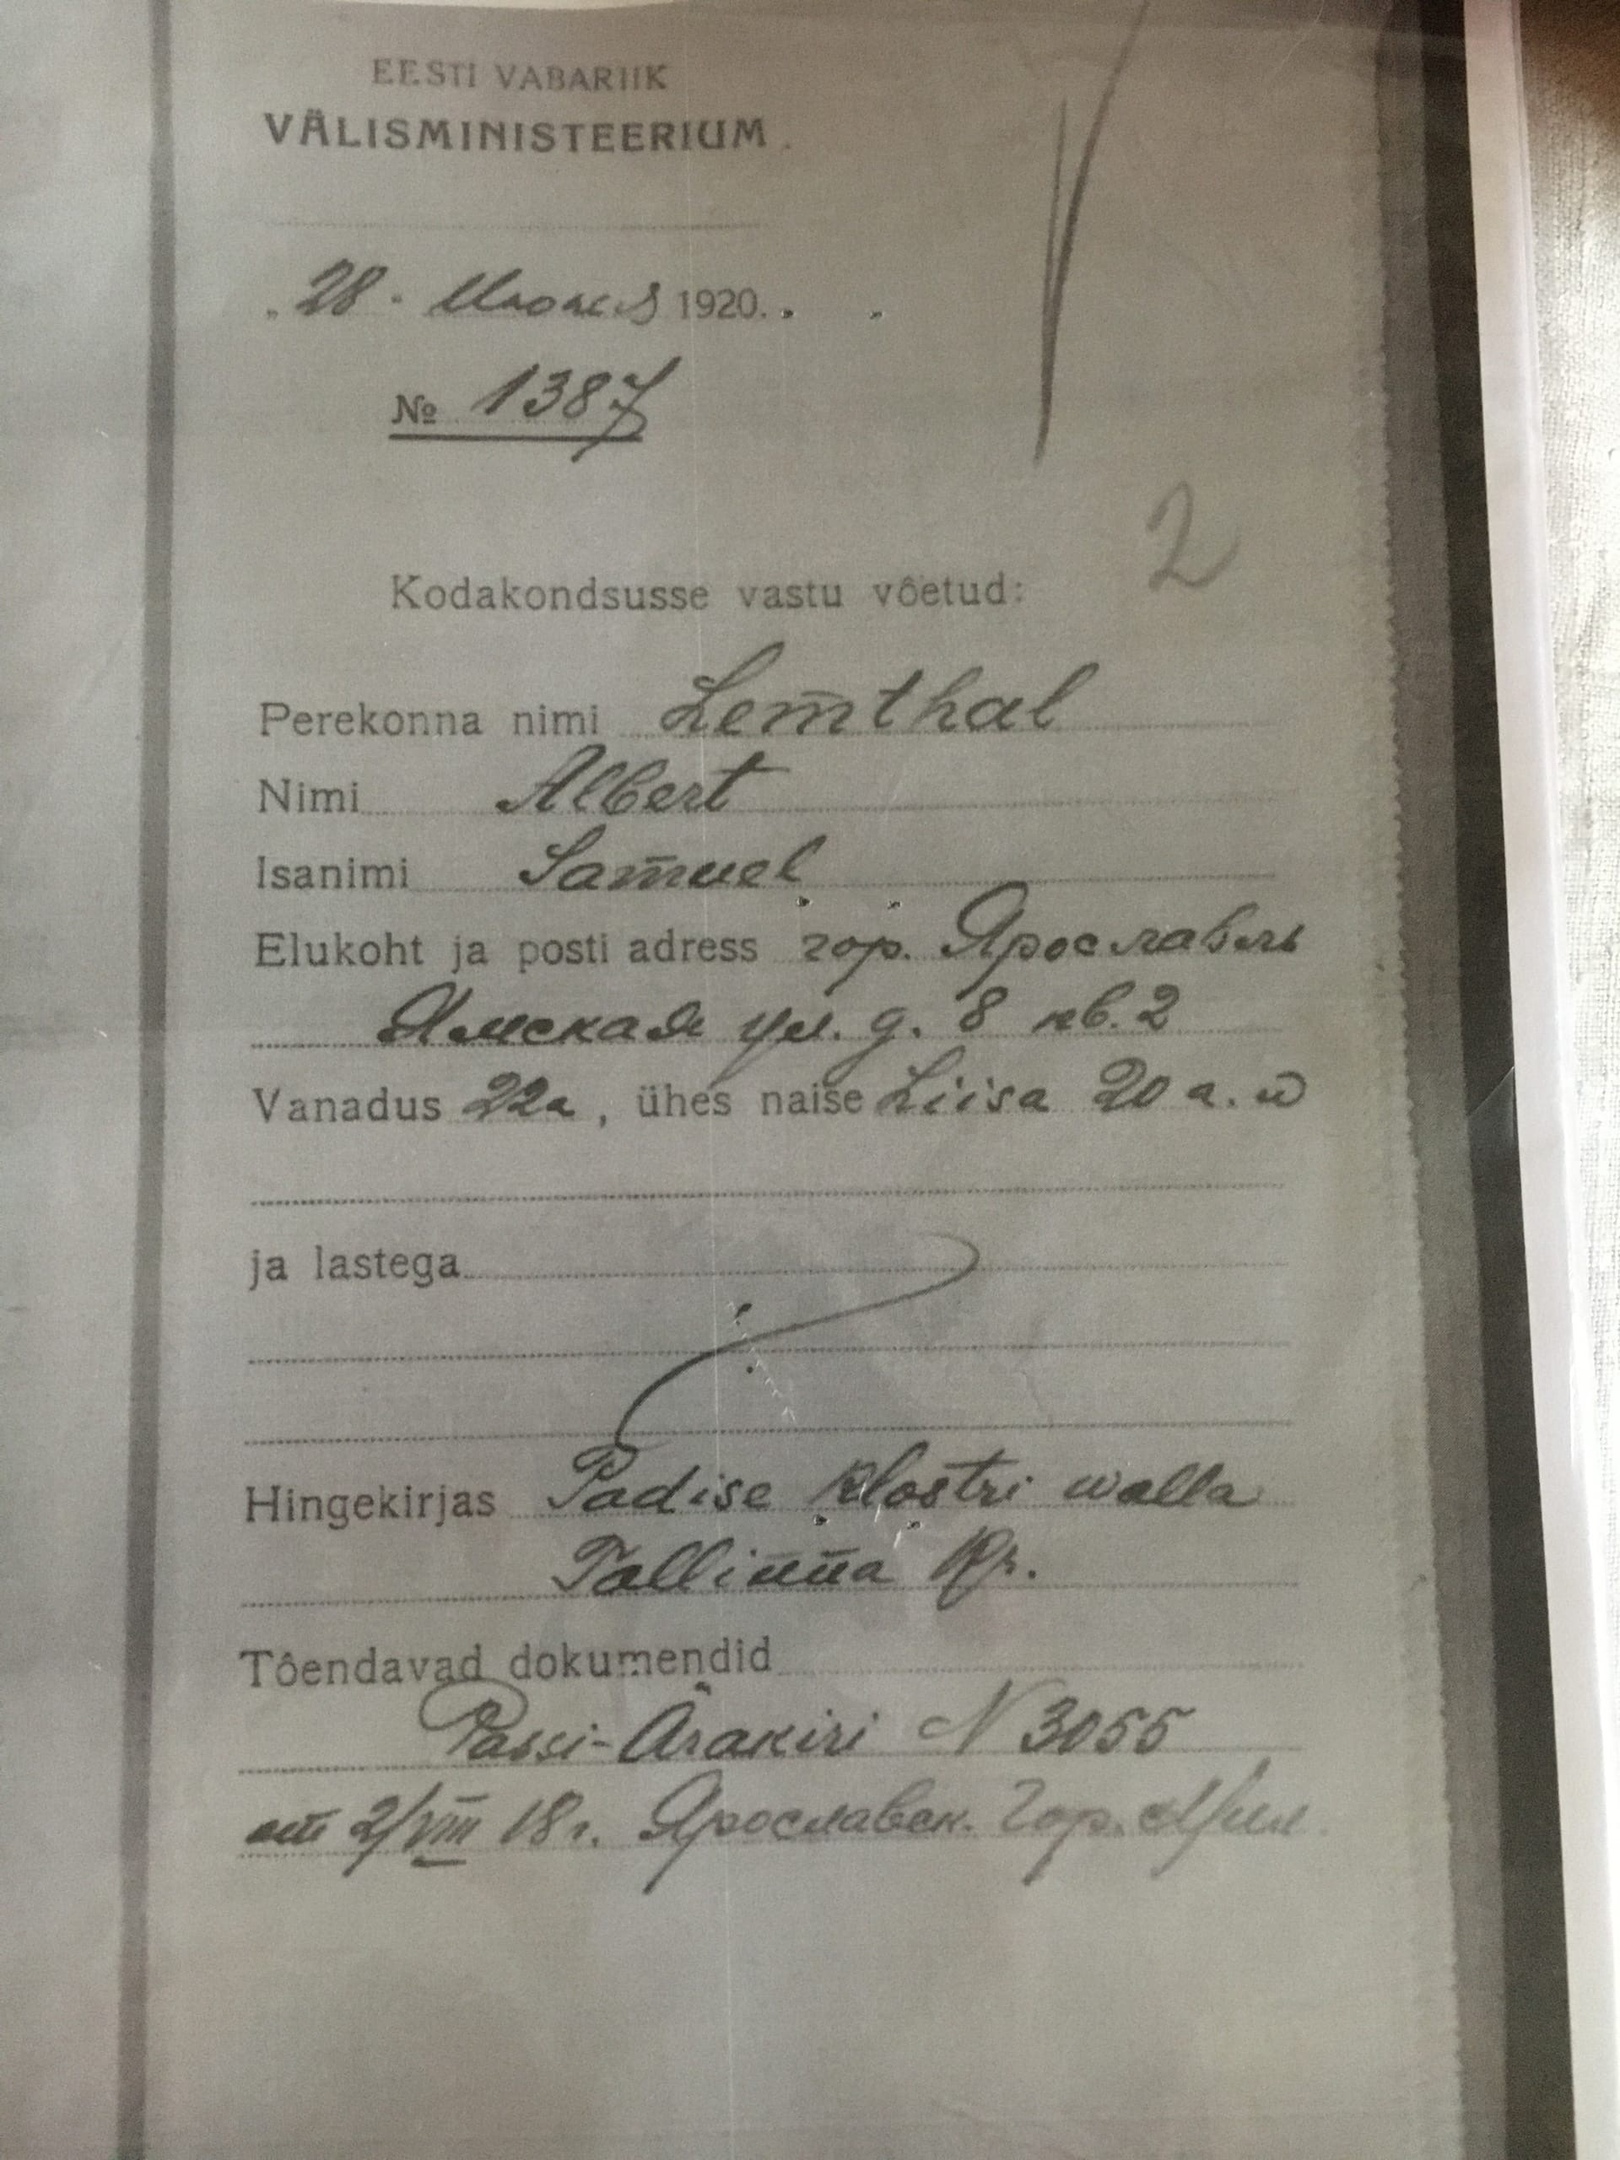 EESTI VABARIIK
VÄLISMINISTEERIUM.
„28. Июня 1920.
№ 1387
2
Kodakondsusse vastu võetud:
Perekonna nimi Lemthal
Nimi Albert
Isanimi Samuel
Elukoht ja posti adress гор. Ярославль
Ямская ул. д. 8 кв. 2
Vanadus 22a, ühes naise Liisa 20 a. w
ja lastega
Hingekirjas Padise Klostri walla
Tallinna Kr.
Tõendavad dokumendid
Passi-Ärakiri N 3055
от 2/VIII 18 г. Ярославск. Гор. Мил.